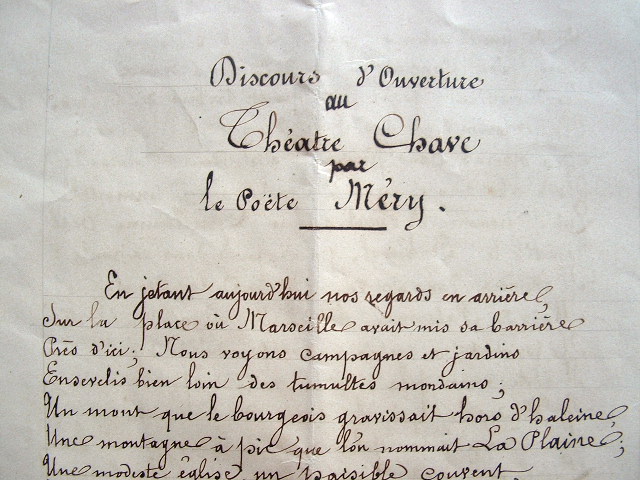 Discours d'Ouverture
au
Théatre Chave
par
le Poëte Méry.
En jetant aujourd'hui nos regards en arrière,
Sur la place où Marseille avait mis sa barrière
Près d'ici; Nous voyons campagnes et jardins
Ensevelis bien loin des tumultes mondains;
Un mont que le bourgeois gravissait hors d'haleine,
Une montagne à pic que l'on nommait La Plaine;
Une modeste église, un paisible couvent,